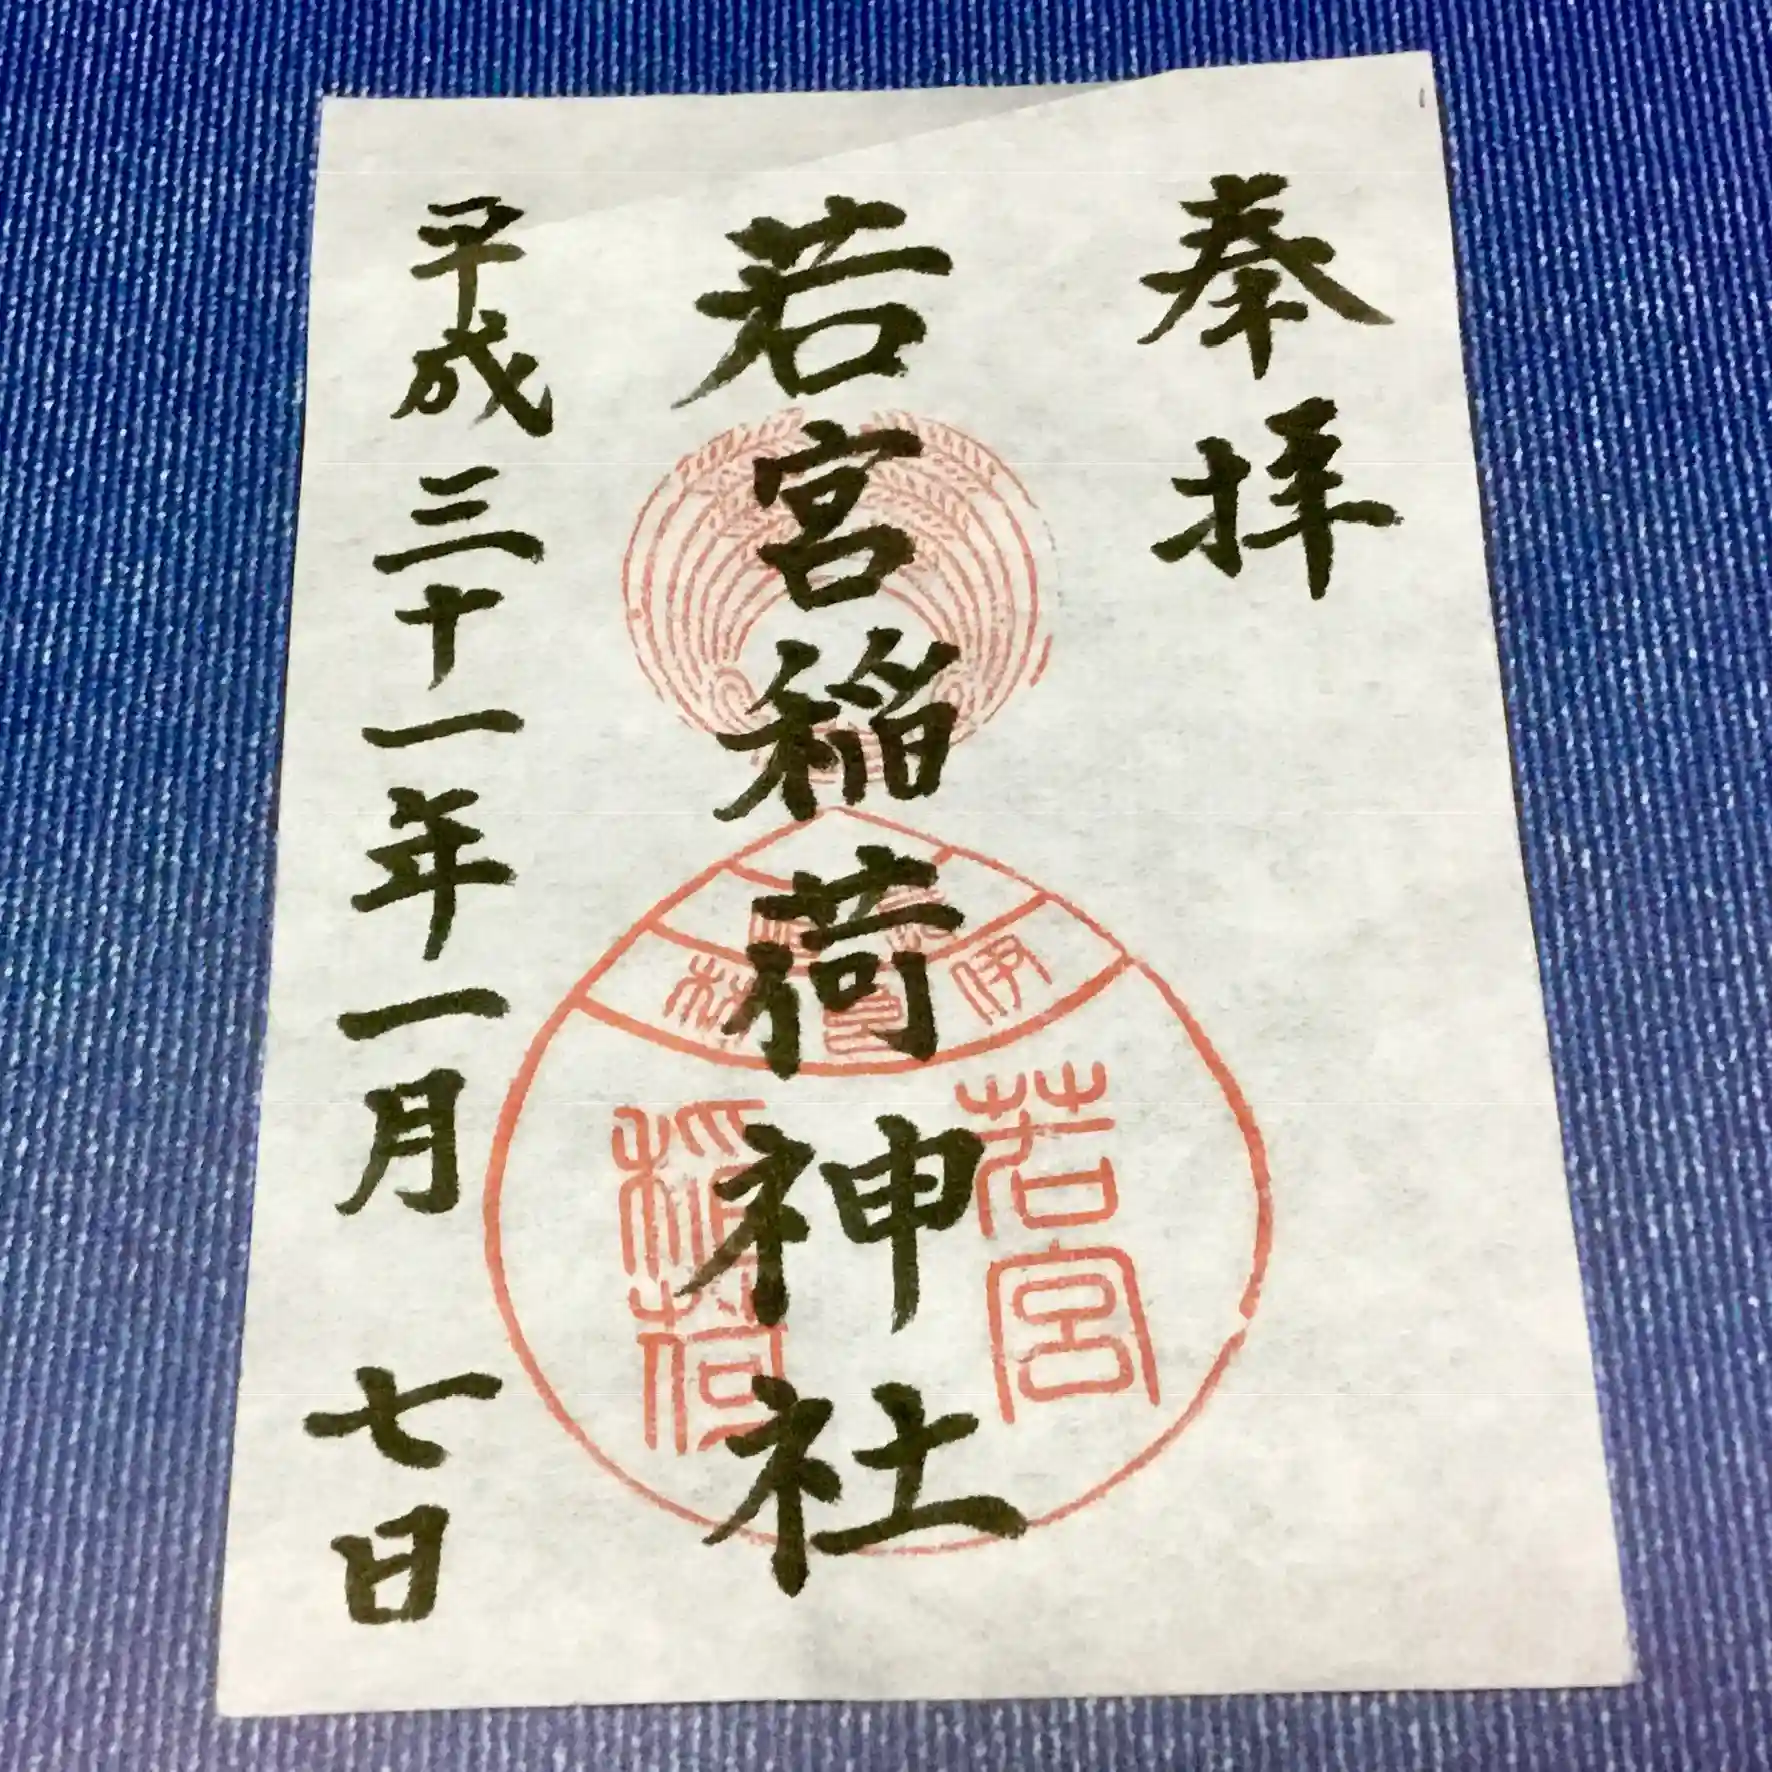 奉拝
若宮稲荷神社
平成三十一年一月七日
若宮
稲荷